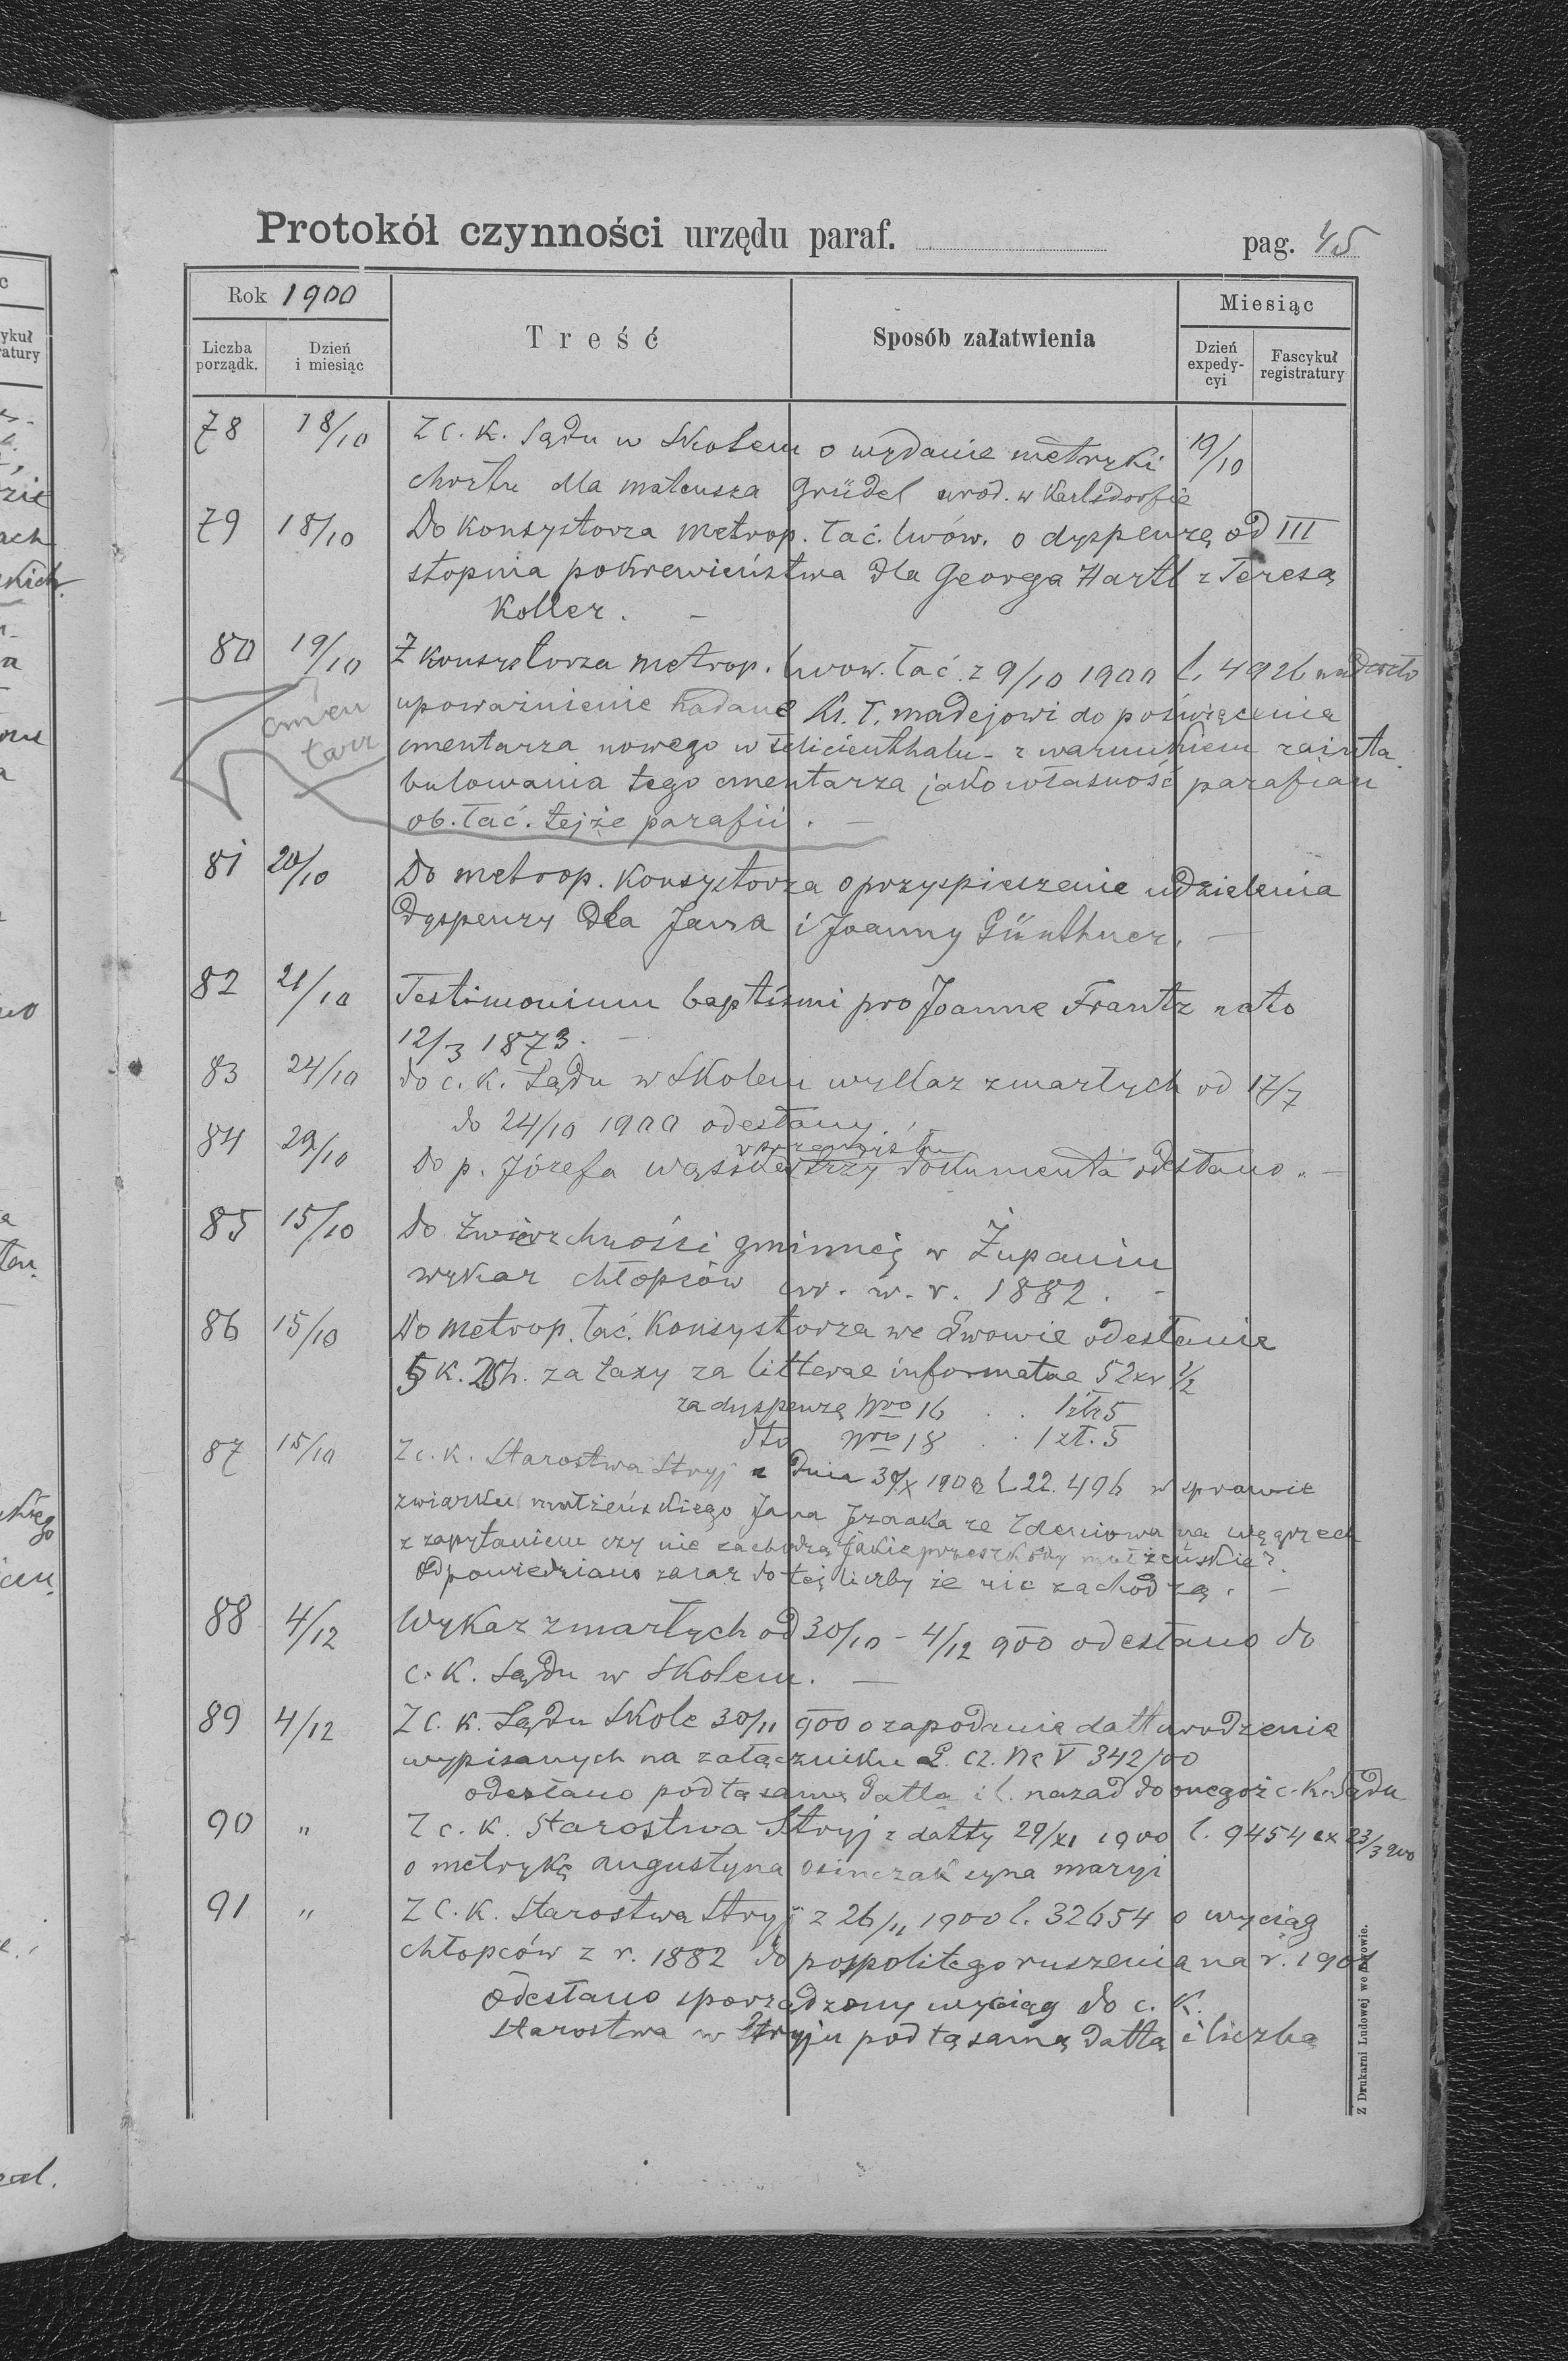 Protokół czynności urzędu paraf. pag. 45
Rok 1900
Miesiąc
Liczba porządk.
Dzień i miesiąc
Treść
Sposób załatwienia
Dzień expedycyi
Fascykuł registratury
78 18/10 Z c. k. Sądu w Skolem o wydanie metryki 19/10
chrztu dla Mateusza Gründel urod. w Karlsdorfie
79 18/10 Do Konsystorza metrop. łać. lwów. o dyspenzę od III
stopnia pokrewieństwa dla Georga Hartl z Teresą
Koller. –
80 19/10 Z Konsystorza metrop. lwow. łać. z 9/10 1900 l. 4926 nadeszło
upoważnienie nadane ks. T. Madejowi do poświęcenia
cmentarza nowego w Felicienthalu – z warunkiem zainta
cmen
tarz
bulowania tego cmentarza jako własność parafian
ob. łać. tejże parafii. –
81 20/10 Do metrop. Konsystorza o przyspieszenie udzielenia
dyspenzy dla Jana i Joanny Günthner. –
82 21/10 Testimonium baptismi pro Joanne Frantz nato
12/3 1873. –
83 24/10 do c. k. Sądu w Skolem wykaz zmarłych od 17/7
do 24/10 1900 odesłany.
84 29/10 Do p. Józefa trzy dokumenta odesłano. –
85 15/10 Do Zwierzchności gminnej w Żupaniu
wykaz chłopców ur. w. r. 1882. –
86 15/10 Do metrop. łać. Konsystorza we Lwowie odesłanie
5 K. 25 h. za taxy za litterae informatae 52 xr 1/2
za dyspenzę Nro 16 . . 1 złr 5
dto Nro 18 . . 1 zł. 5
87 15/10 Z c. k. Starostwa Stryj z dnia 30/X 1900 l. 22.496 w sprawie
związku małżeńskiego Jana ze na węgrzech
z zapytaniem czy nie zachodzą jakie przeszkody małżeńskie?
Odpowiedziano zaraz do tej liczby że nie zachodzą. –
88 4/12 Wykaz zmarłych od 30/10 – 4/12 900 odesłano do
c. K. Sądu w Skolem. –
89 4/12 Z c. K. Sądu Skole 30/11 900 o zapodanie datt urodzenia
wypisanych na załączniku L. cz. Nc V 342/00
odesłano pod tą samą dattą i l. nazad do onegoż c. K. Sądu
90 " Z c. K. Starostwa Stryj z datty 29/XI 1900 l. 9454 ex 23/3 900
o metrykę Augustyna Osinczak syna Maryi
91 " Z C. K. Starostwa Stryj z 26/11 1900 l. 32654 o wyciąg
chłopców z r. 1882 do pospolitego ruszenia na r. 1901
Odesłano sporządzony wyciąg do c. K.
Starostwa w Stryju pod tą samą dattą i liczbą
Z Drukarni Ludowej we Lwowie.